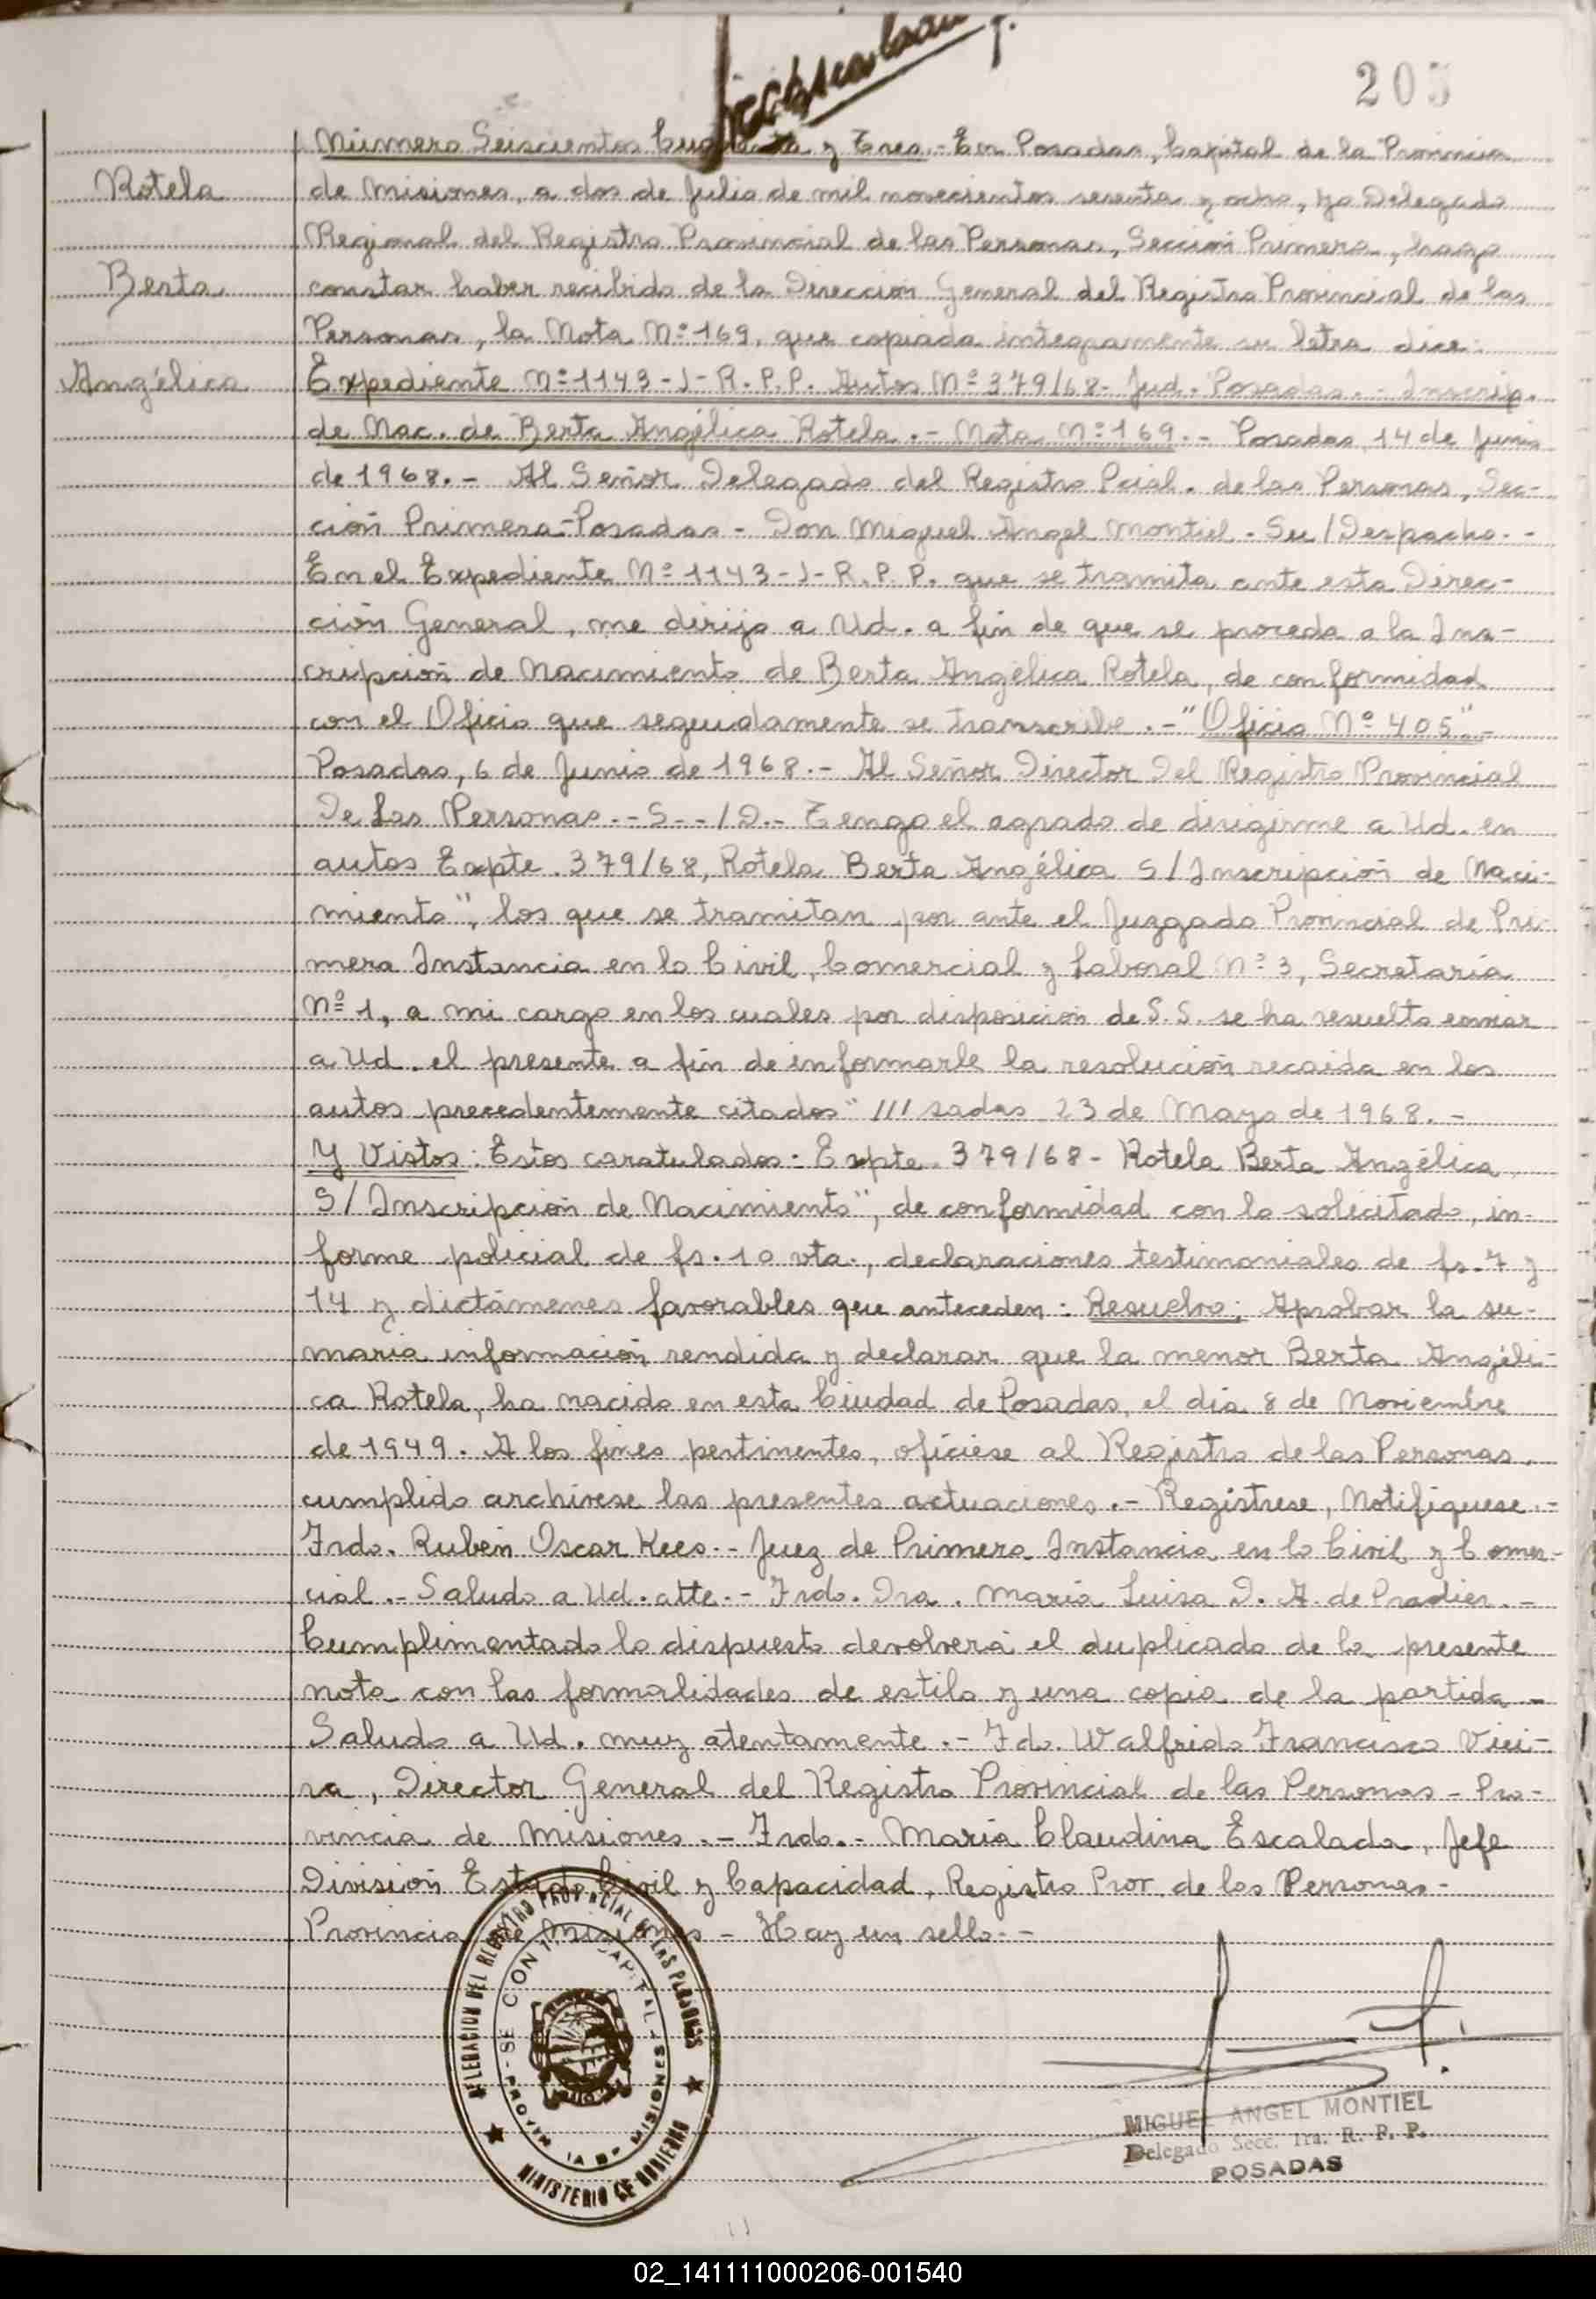 205
Número Seiscientos y Tres.- En Posadas, Capital de la Provincia
Rotela
de Misiones, a dos de Julio de mil novecientos sesenta y ocho, yo Delegado
Regional del Registro Provincial de las Personas, Sección Primera, hago
Berta
constar haber recibido de la Dirección General del Registro Provincial de las
Personas, la Nota Nº 169, que copiada integramente su letra dice:
Angélica
Expediente Nº 1143-J-R.P.P. Autos Nº 379/68- Jud. Posadas.- Inscrip.
de Nac. de Berta Angélica Rotela.- Nota Nº 169.- Posadas, 14 de Junio
de 1968.- Al Señor Delegado del Registro Pcial. de las Personas, Sec-
ción Primera-Posadas- Don Miguel Angel Montiel- Su/Despacho.-
En el Expediente Nº 1143-J-R.P.P. que se tramita ante esta Direc-
ción General, me dirijo a Ud. a fin de que se proceda a la Ins-
cripción de Nacimiento de Berta Angélica Rotela, de conformidad
con el Oficio que seguidamente se transcribe.-"Oficio Nº 405"-
Posadas, 6 de Junio de 1968.- Al Señor Director Del Registro Provincial
De Las Personas.--S--/D.- Tengo el agrado de dirigirme a Ud. en
autos Expte. 379/68, Rotela Berta Angélica S/Inscripción de Naci-
miento", los que se tramitan por ante el Juzgado Provincial de Pri-
mera Instancia en lo Civil, Comercial y Laboral Nº 3, Secretaría
Nº 1, a mi cargo en los cuales por disposición de S.S. se ha resuelto enviar
a Ud. el presente a fin de informarle la resolución recaída en los
autos precedentemente citados" /// sadas 23 de Mayo de 1968.-
Y Vistos: Estos caratulados: Expte. 379/68- Rotela Berta Angélica
S/Inscripción de Nacimiento", de conformidad con lo solicitado, in-
forme policial de fs. 10 vta., declaraciones testimoniales de fs. 7 y
14 y dictámenes favorables que anteceden: Resuelvo: Aprobar la su-
maria información rendida y declarar que la menor Berta Angéli-
ca Rotela, ha nacido en esta Ciudad de Posadas, el día 8 de Noviembre
de 1949. A los fines pertinentes, ofíciese al Registro de las Personas,
cumplido archívese las presentes actuaciones.- Regístrese, Notifíquese.-
Frdo. Rubén Oscar Kees.- Juez de Primera Instancia en lo Civil y Comer-
cial.- Saludo a Ud. atte.- Frdo. Dra. María Luisa D. A. de Pradier.-
Cumplimentado lo dispuesto devolverá el duplicado de la presente
nota con las formalidades de estilo y una copia de la partida-
Saludo a Ud. muy atentamente.- Fdo. Walfrido Francisco Viei-
ra, Director General del Registro Provincial de las Personas- Pro-
vincia de Misiones.- Frdo.- María Claudina Escalada, Jefe
División Estado Civil y Capacidad, Registro Prov. de las Personas-
Provincia de Misiones- Hay un sello.-
DELEGACION DEL REGISTRO PROVINCIAL DE LAS PERSONAS
MINISTERIO DE GOBIERNO
MIGUEL ANGEL MONTIEL
Delegado Secc. 1ra. R. P. P.
POSADAS
02_141111000206-001540